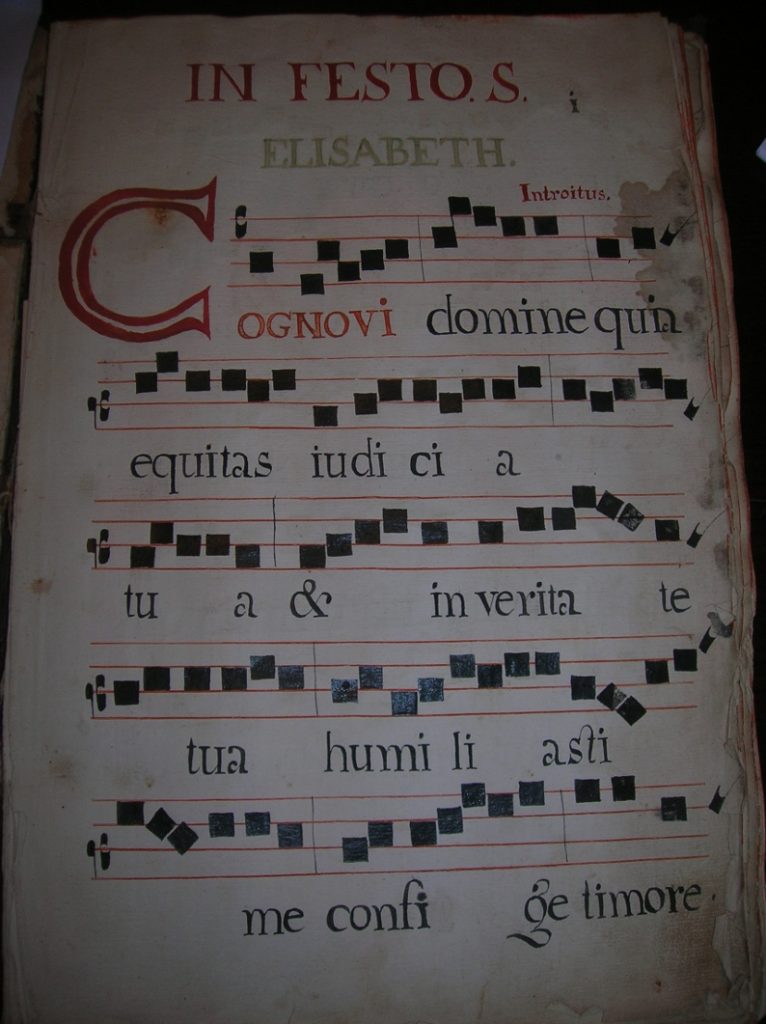 IN FESTO. S.
i
ELISABETH.
Introitus.
COGNOVI domine quia
equitas iudi ci a
tu a & in verita te
tua humi li asti
me confi ge timore.